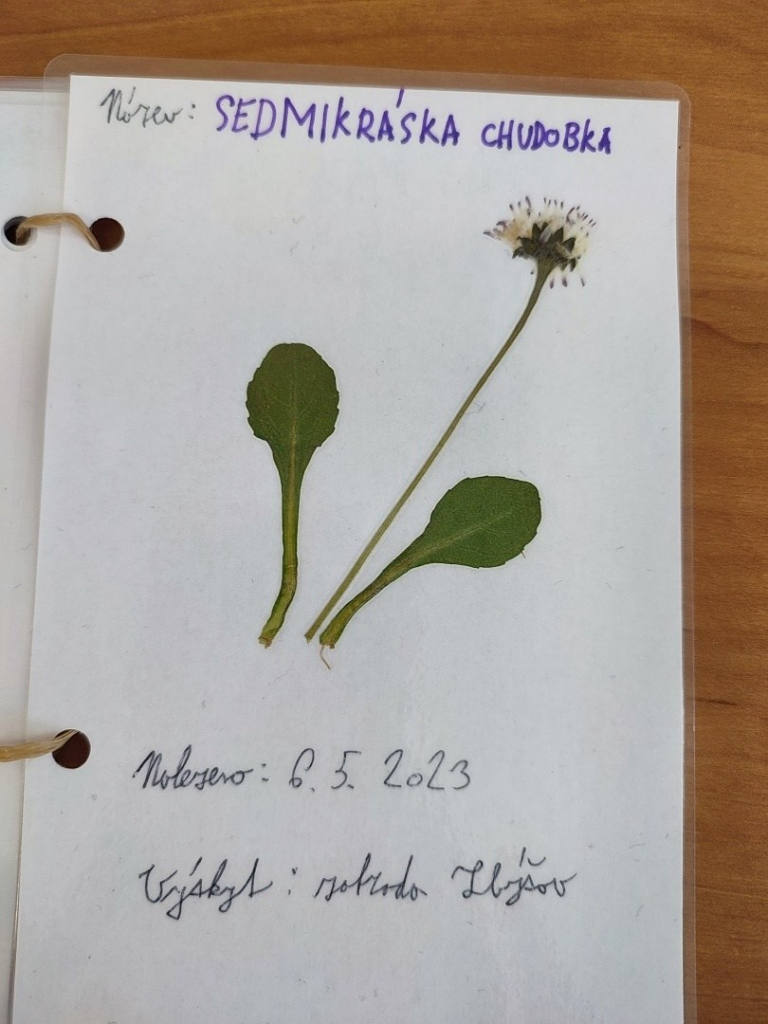 Název: SEDMIKRÁSKA CHUDOBKA
Nalezeno: 6. 5. 2023
Výskyt: zahrada Zbýšov